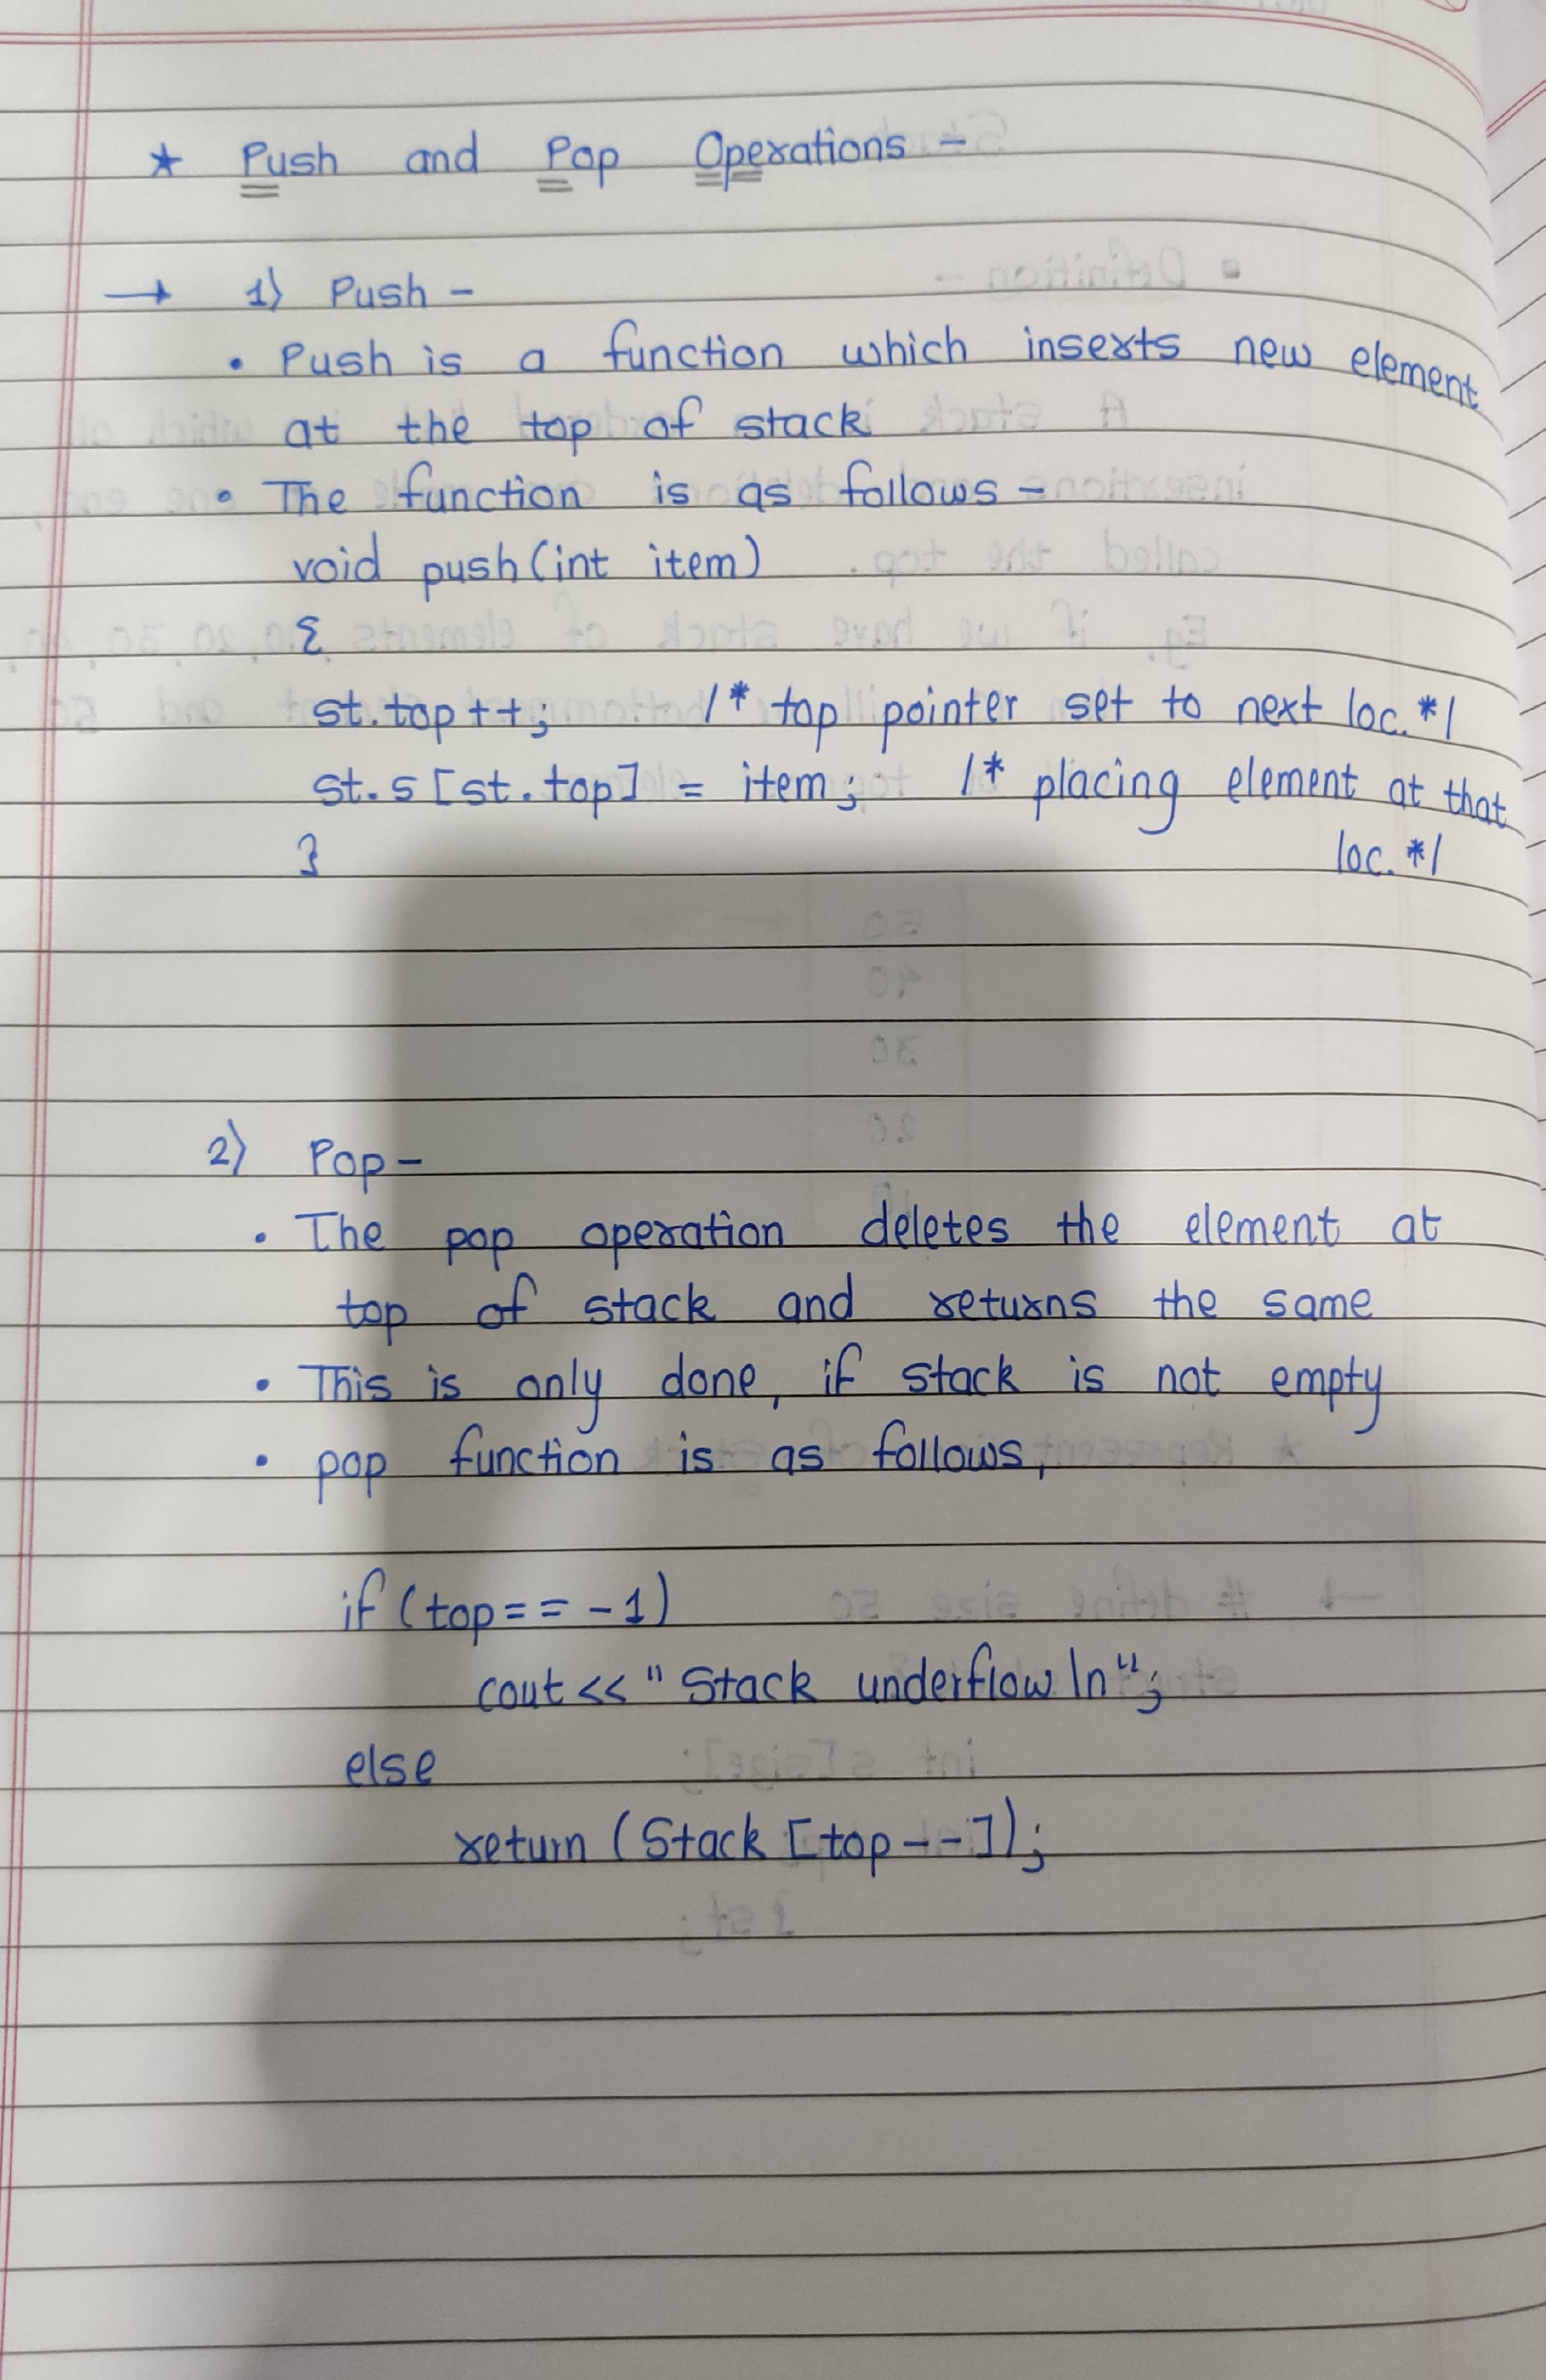 ★ Push and Pop Operations -
→ 1) Push -
• Push is a function which inserts new element
at the top of stack
• The function is as follows -
void push (int item)
{
st.top++; /* top pointer set to next loc. */
st.s[st.top] = item; /* placing element at that
} loc. */
2) Pop -
• The pop operation deletes the element at
top of stack and returns the same
• This is only done, if stack is not empty
• pop function is as follows,
if (top == -1)
cout << "Stack underflow \n";
else
return (Stack [top--]);